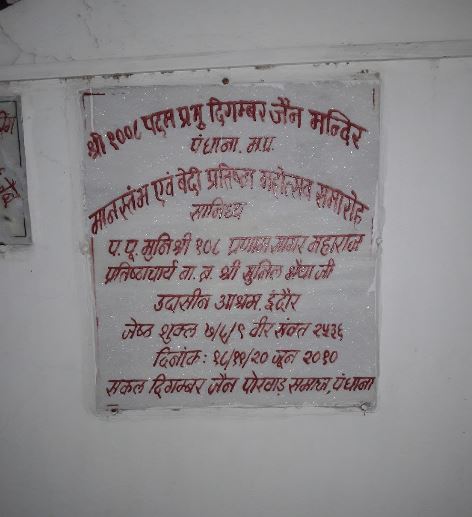 श्री १००८ पदम प्रभु दिगम्बर जैन मन्दिर
पंधाना. म.प्र.
मानस्तंभ एवं वेदी प्रतिष्ठा महोत्सव समारोह
सानिध्य
प. पू. मुनि श्री १०८ प्रणाम सागर महाराज
प्रतिष्ठाचार्य बा. ब्र. श्री सुनिल भैया जी
उदासीन आश्रम. इंदौर
जेष्ठ शुक्ल ७/८/९ वीर संवत २५३६
दिनांक: १८/१९/२० जून २०१०
सकल दिगम्बर जैन पोरवाड़ समाज, पंधाना